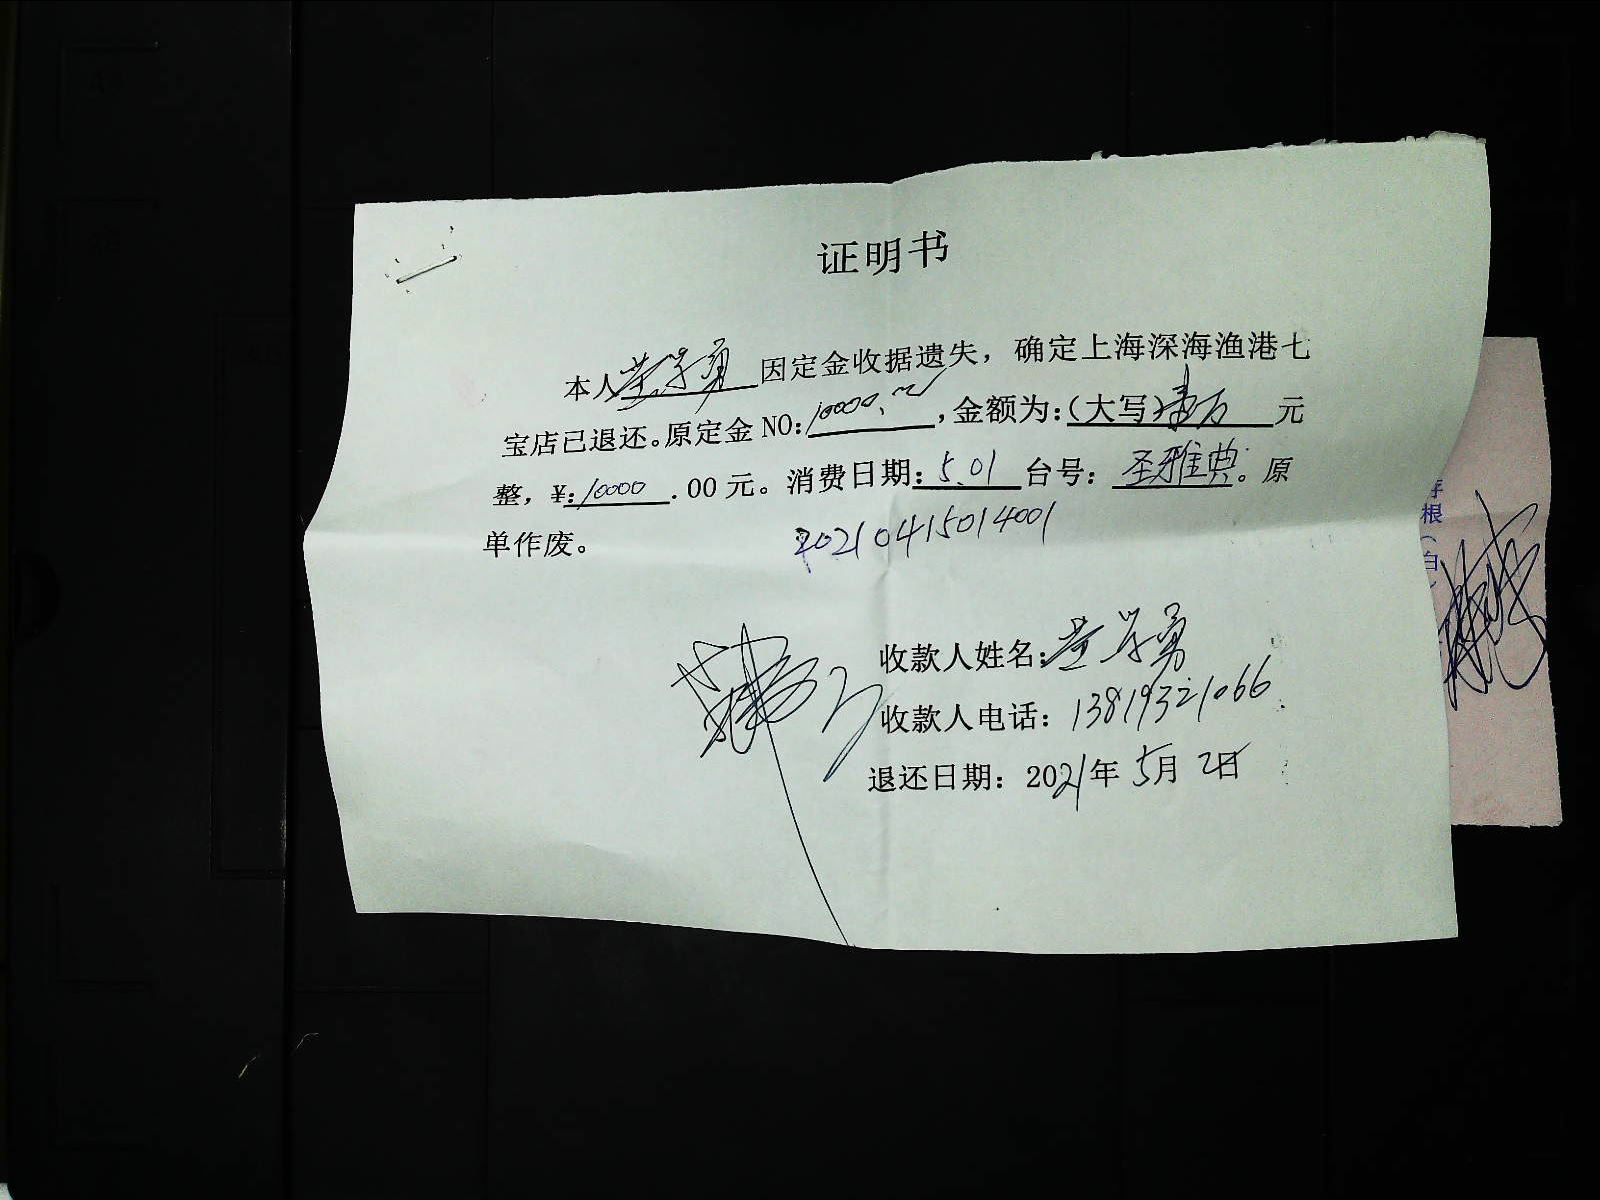 证明书
本人董学勇因定金收据遗失，确定上海深海渔港七
宝店已退还。原定金NO:10000.00，金额为:(大写)壹万元
整，¥:10000.00元。消费日期:5.01台号：圣雅典。原
单作废。 20210415014001
收款人姓名:董学勇
收款人电话：13819321066
退还日期：2021年5月2日
存根（白）